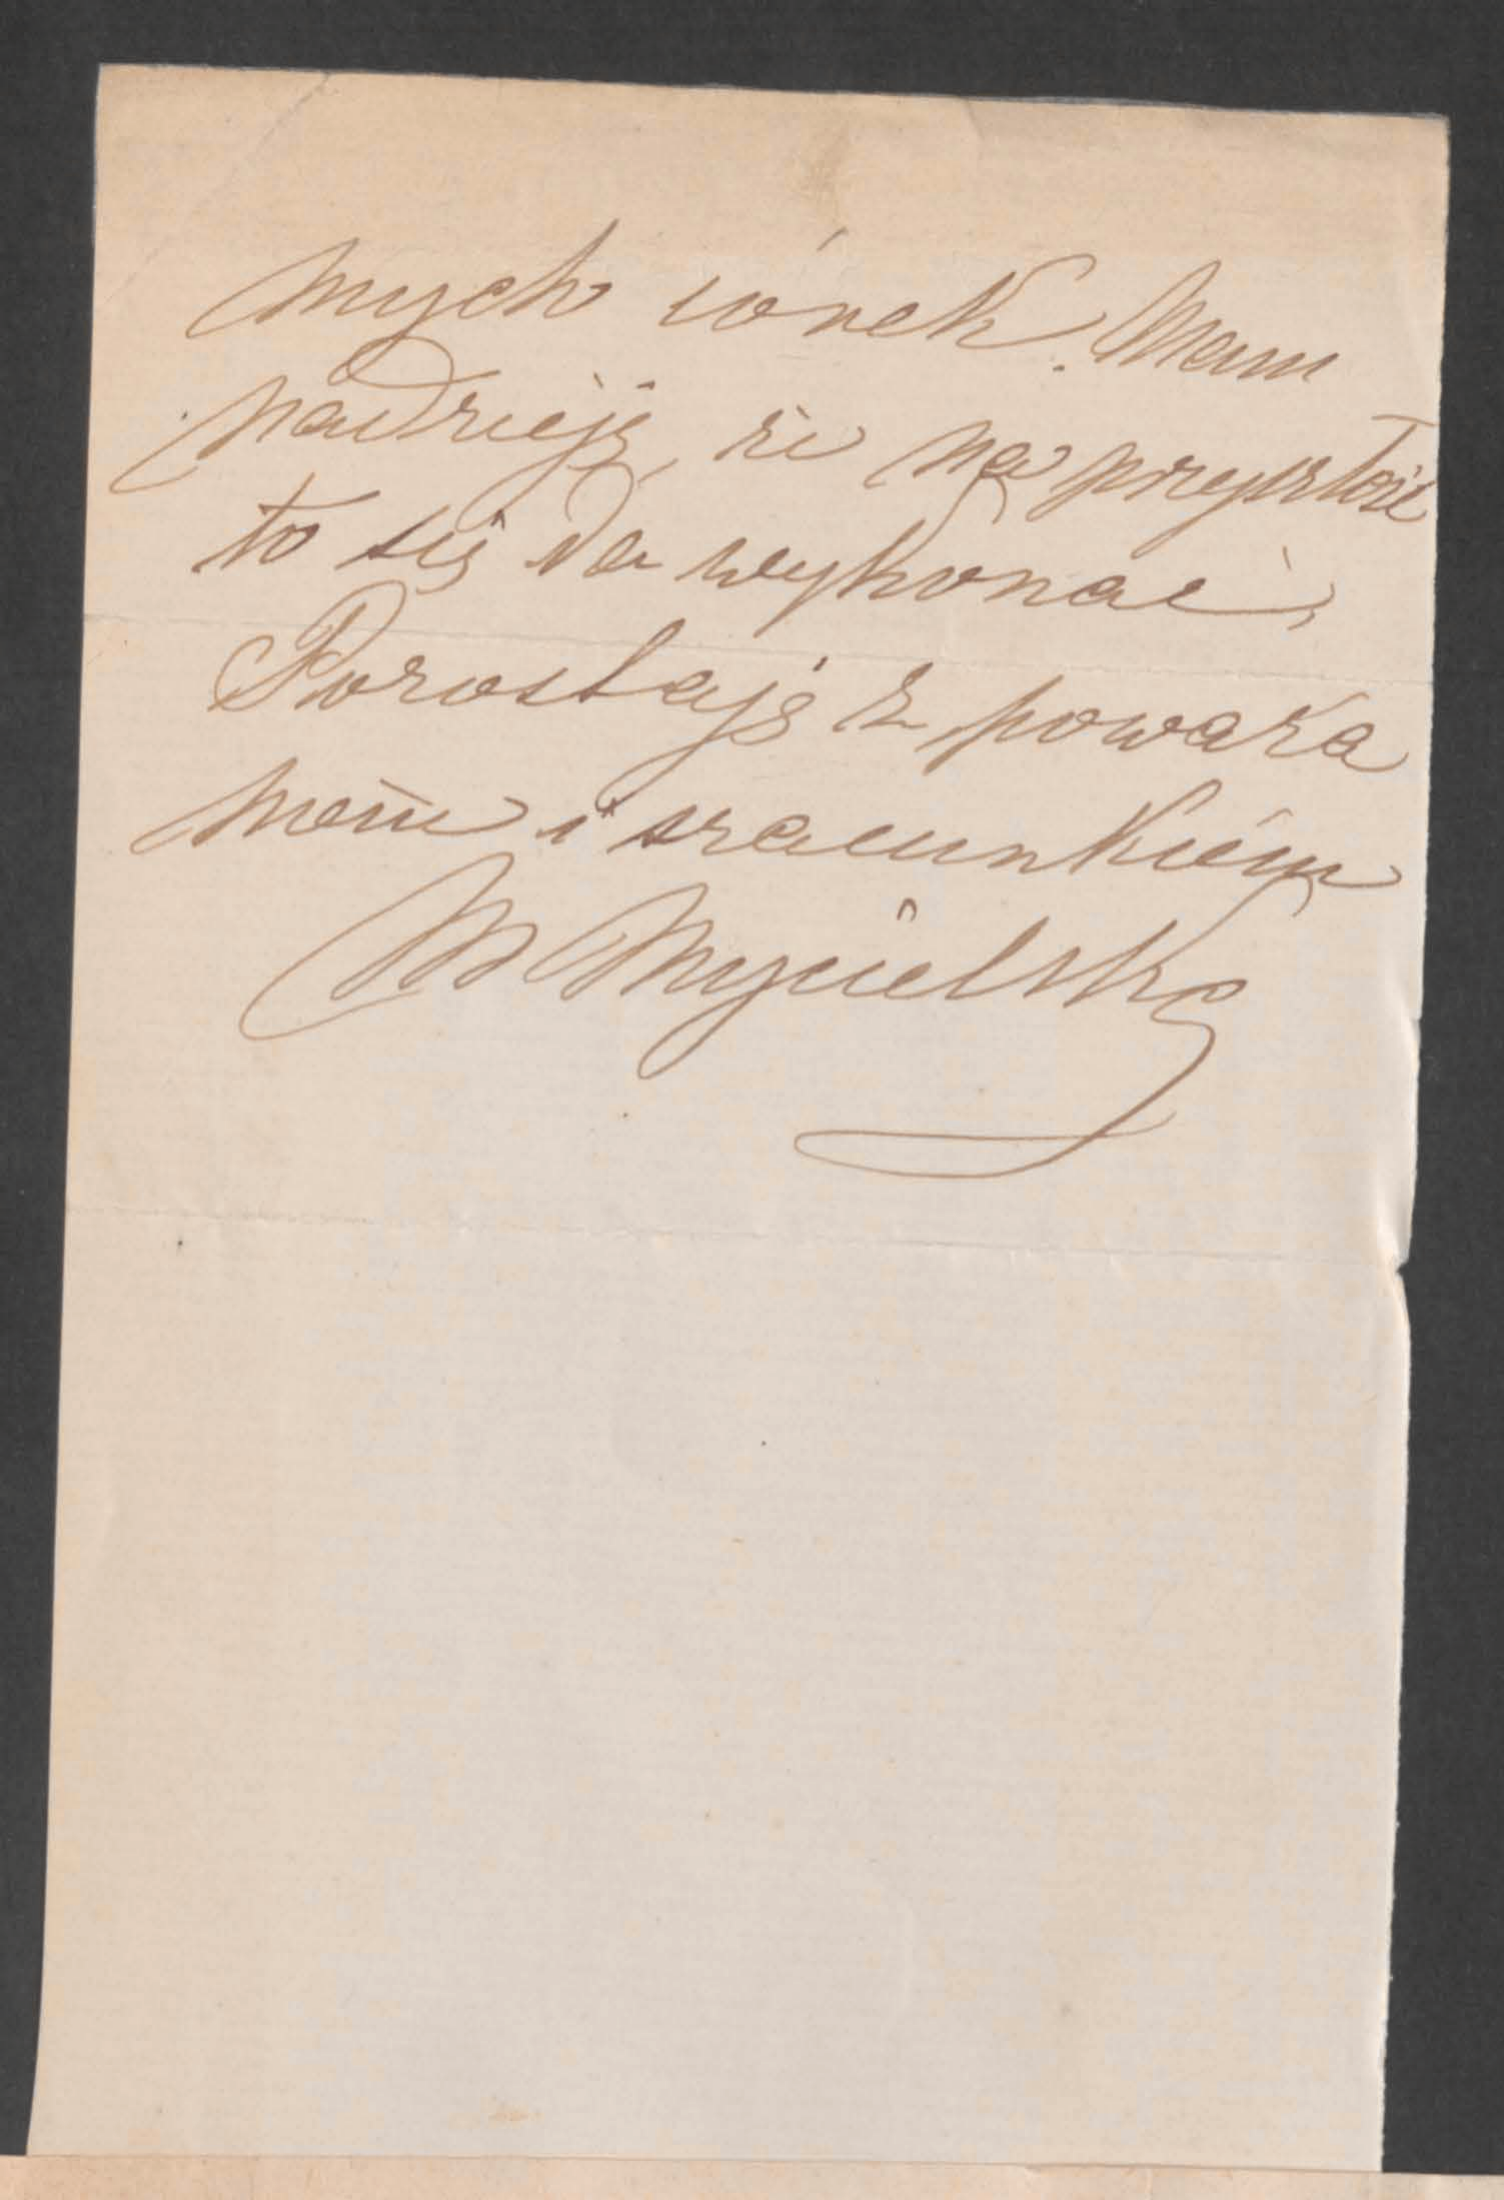 mych córek. Mam
nadzieję, że na przyszłość
to się da wykonać,
Pozostaję z poważa
niem i szacunkiem
M Mycielska